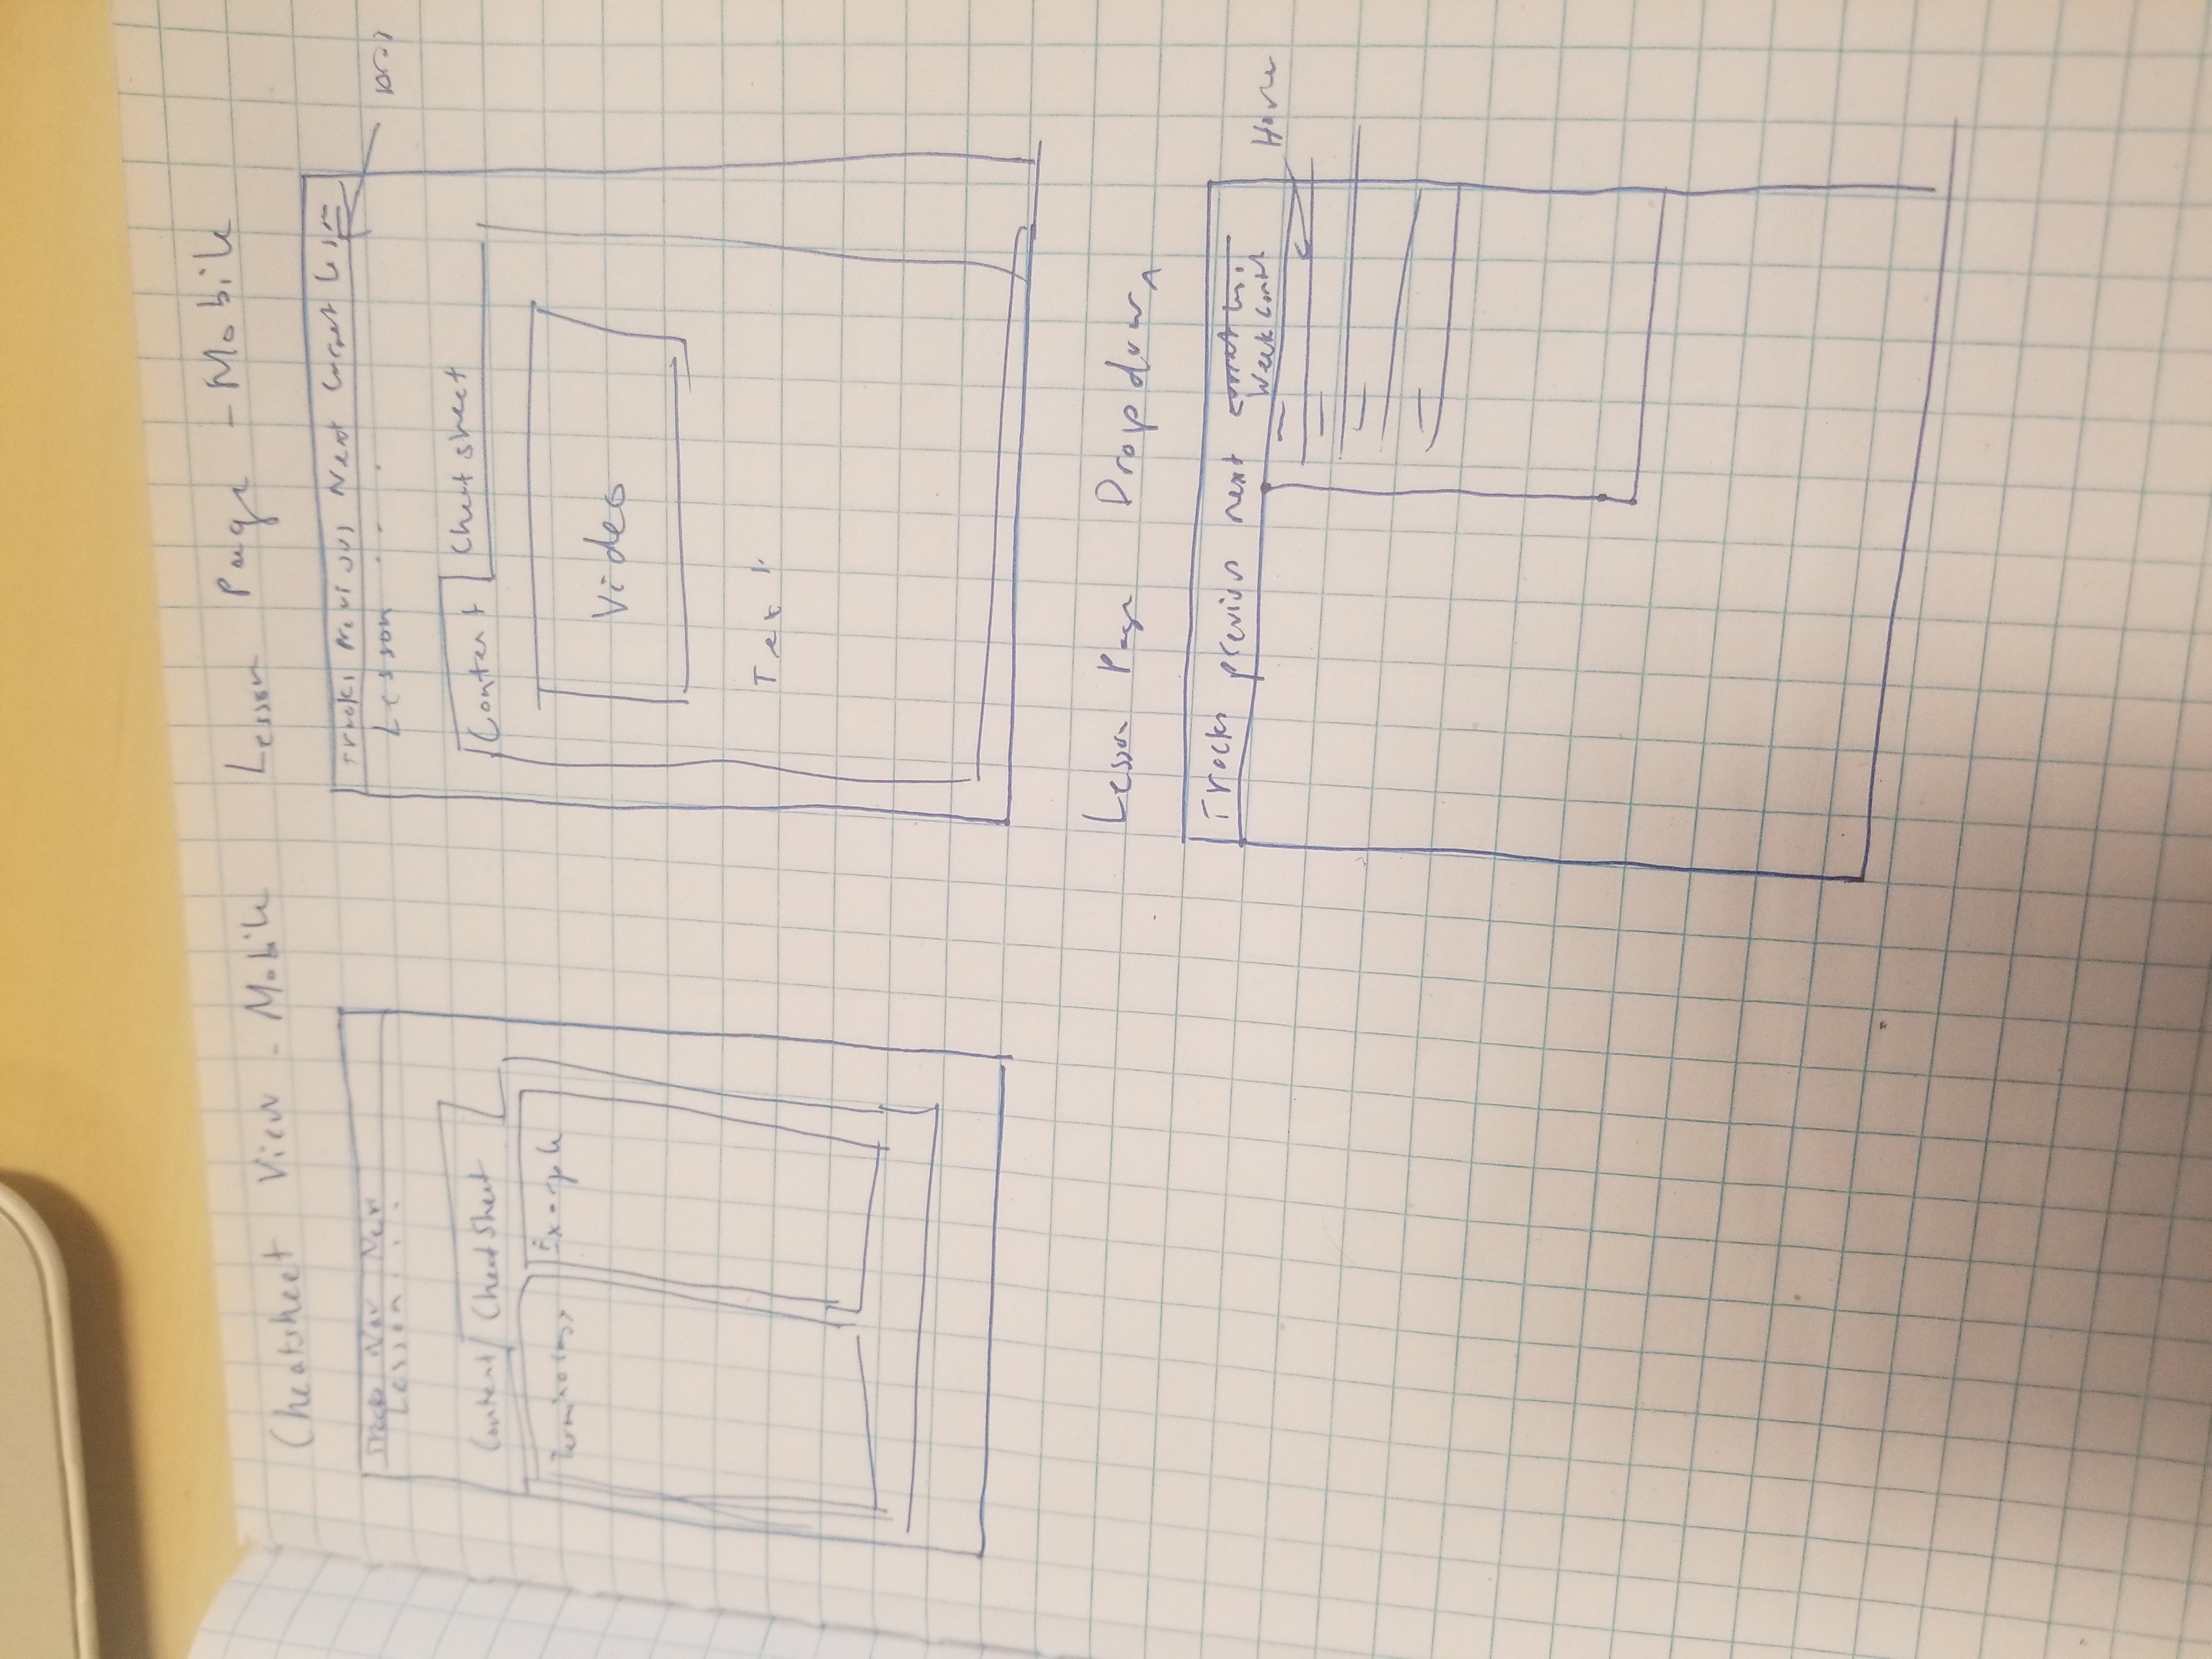 Cheatsheet View - Mobile
Tracks Nav
Lesson . . .
Content CheatSheet
Terminology Example
Lesson Page - Mobile
Tracks Previous Next Current Lesson
Lesson . . .
Content Cheatsheet
Video
Text
Lesson Page Dropdown
Tracks previous next
Week